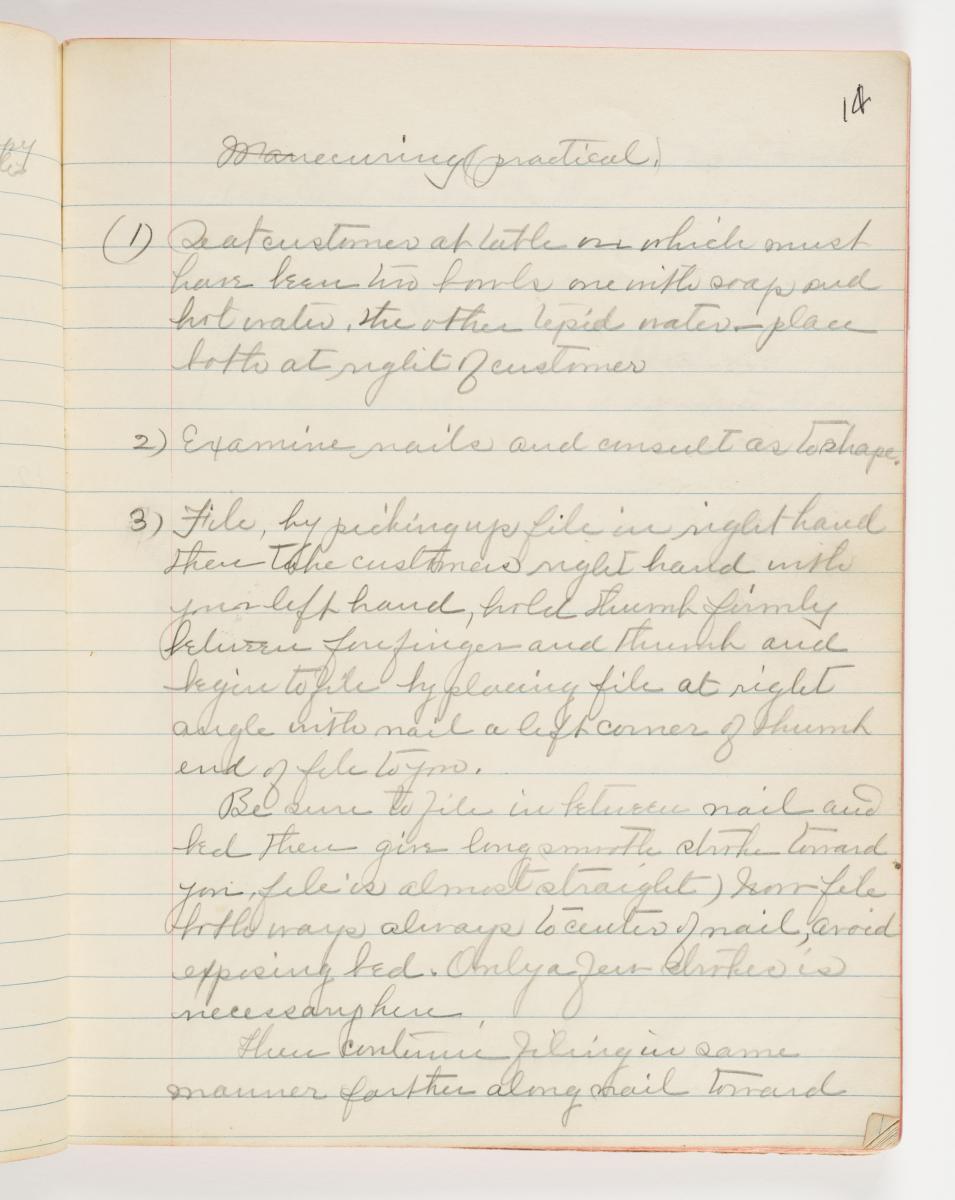 14
Manecuring (practical)
(1) Seat customer at table on which must
have been two bowls one with soap and
hot water, the other tepid water – place
both at right of customer
2) Examine nails and consult as to shape.
3) File, by picking up file in right hand
then take customers right hand with
your left hand, hold thumb firmly
between forefinger and thumb and
begin to file by placing file at right
angle with nail a left corner of thumb
end of file to you.
Be sure to file in between nail and
bed then give long smooth stroke toward
you, file is almost straight) now file
both ways always to center of nail, avoid
exposing bed. Only a few strokes is
necessary here.
Then continue filing in same
manner farther along nail toward